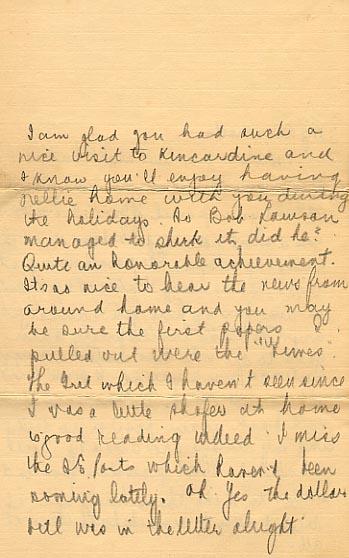 I am glad you had such a
nice visit to Kincardine and
I know you'll enjoy having
Nellie home with you during
the holidays. So Bob Lawson
managed to shirk it, did he?
Quite an honorable achievement.
Its so nice to hear the news from
around home and you may
be sure the first papers I
pulled out were the "Times".
The which I haven't seen since
I was a little shafer at home
is good reading indeed. I miss
the which haven't been
coming lately. Oh yes the dollar
bill was in the letter alright